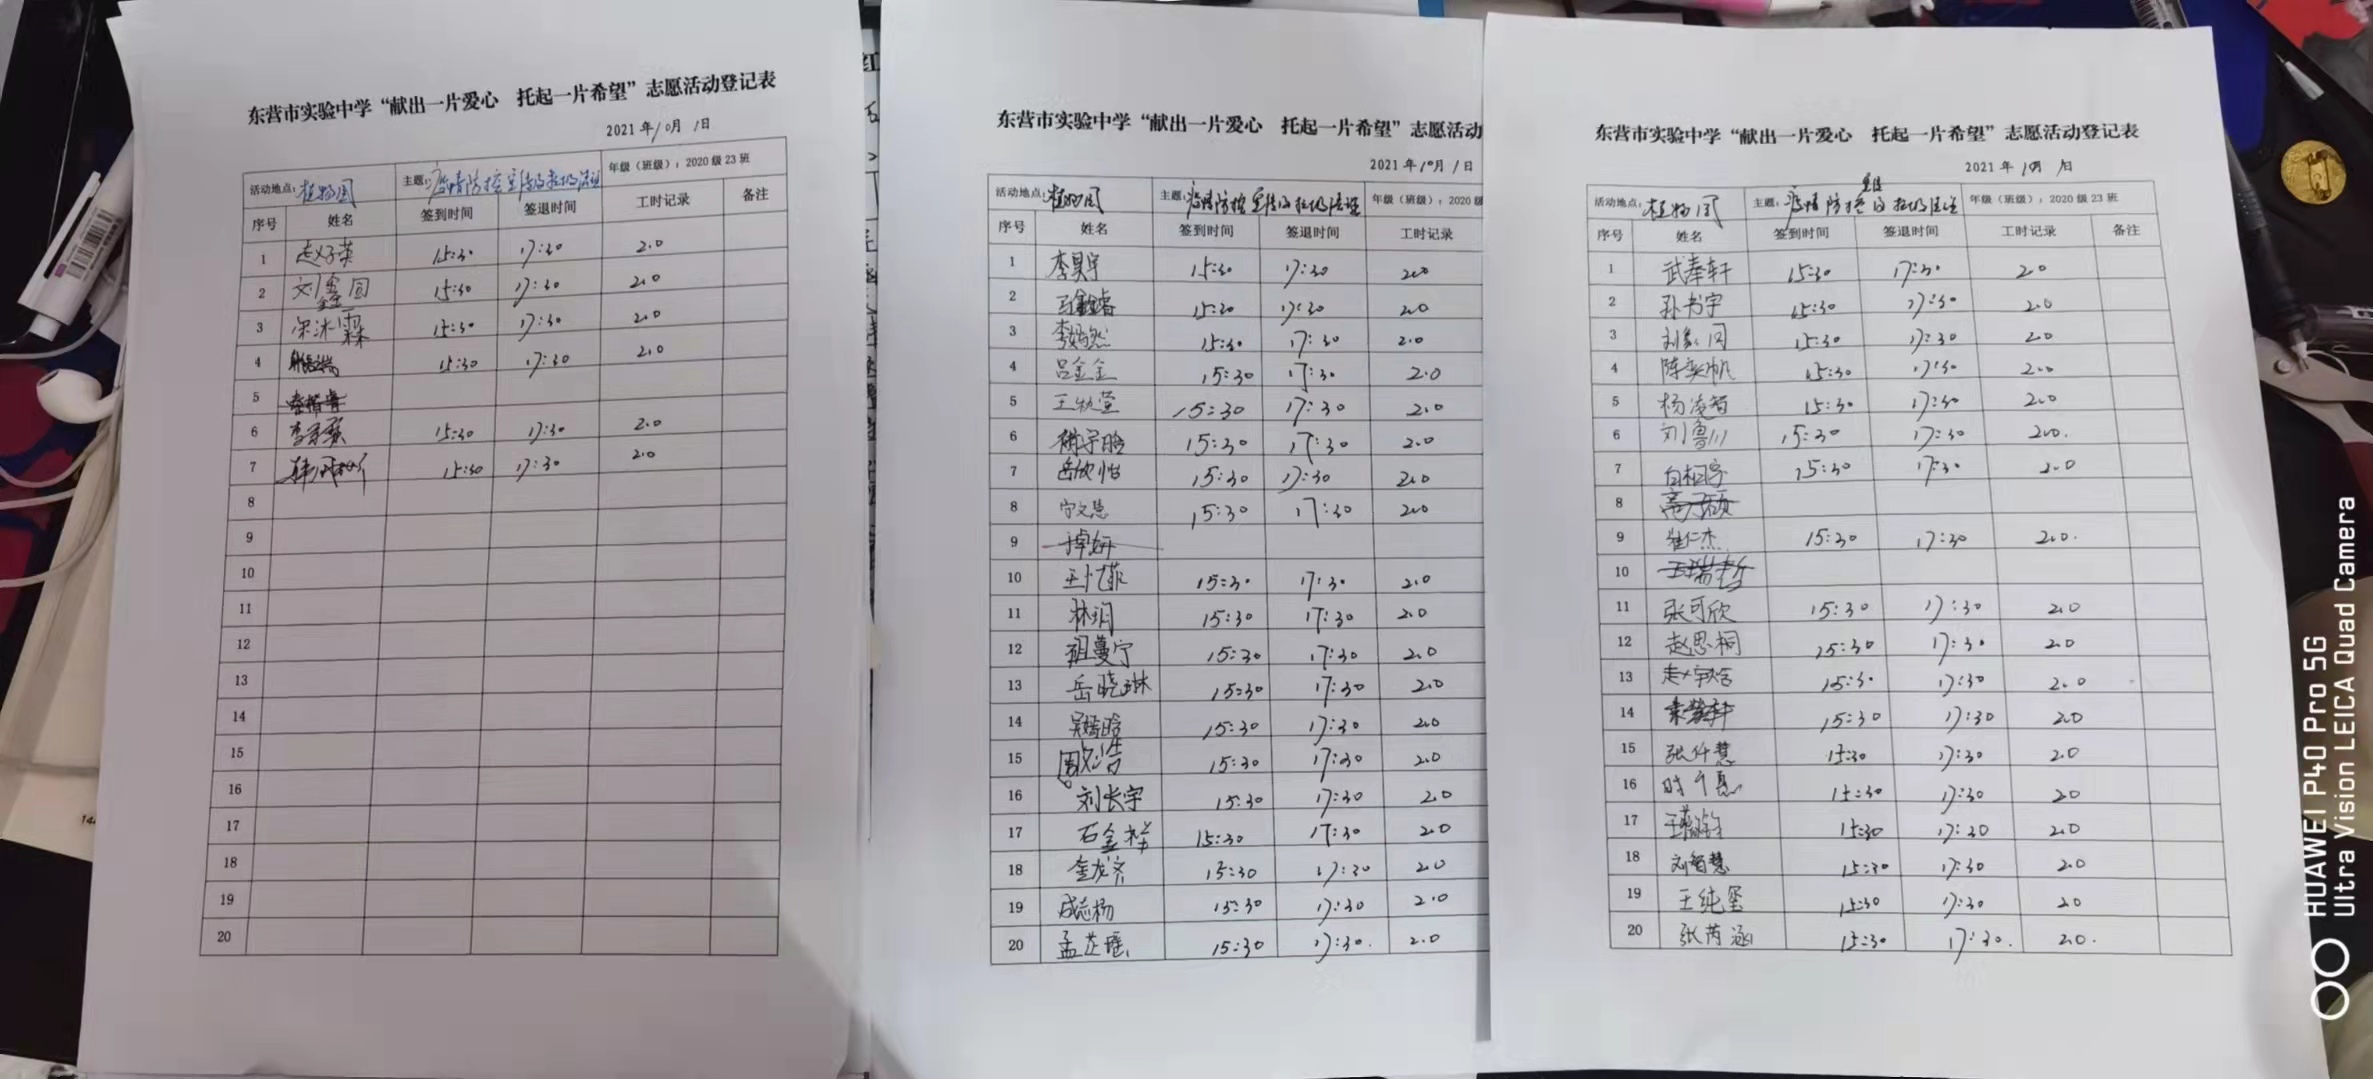 东营市实验中学“献出一片爱心 托起一片希望”志愿活动登记表
2021年10月1日
活动地点:植物园 主题:疫情防控宣传及垃圾清理 年级(班级):2020级23班
序号 姓名 签到时间 签退时间 工时记录 备注
1 赵子英 15:30 17:30 2.0
2 刘鑫圆 15:30 17:30 2.0
3 宋沐霖 15:30 17:30 2.0
4 15:30 17:30 2.0
5
6 15:30 17:30 2.0
7 15:30 17:30 2.0
8
9
10
11
12
13
14
15
16
17
18
19
20
东营市实验中学“献出一片爱心 托起一片希望”志愿活动
2021年10月1日
活动地点:植物园 主题:疫情防控宣传及垃圾清理 年级(班级):2020级
序号 姓名 签到时间 签退时间 工时记录
1 李昊宇 15:30 17:30 2.0
2 15:30 17:30 2.0
3 李嫣然 15:30 17:30 2.0
4 吕金金 15:30 17:30 2.0
5 15:30 17:30 2.0
6 15:30 17:30 2.0
7 岳欣怡 15:30 17:30 2.0
8 宁文慧 15:30 17:30 2.0
9
10 王忆菲 15:30 17:30 2.0
11 林玥 15:30 17:30 2.0
12 祖蔓宁 15:30 17:30 2.0
13 岳晓琳 15:30 17:30 2.0
14 吴嫣晗 15:30 17:30 2.0
15 周文浩 15:30 17:30 2.0
16 刘长宇 15:30 17:30 2.0
17 石金祥 15:30 17:30 2.0
18 金龙济 15:30 17:30 2.0
19 成志杨 15:30 17:30 2.0
20 孟芷瑶 15:30 17:30 2.0
东营市实验中学“献出一片爱心 托起一片希望”志愿活动登记表
2021年10月1日
活动地点:植物园 主题:疫情防控宣传及垃圾清理 年级(班级):2020级23班
序号 姓名 签到时间 签退时间 工时记录 备注
1 武奉轩 15:30 17:30 2.0
2 孙书宇 15:30 17:30 2.0
3 15:30 17:30 2.0
4 陈奕帆 15:30 17:30 2.0
5 杨凌智 15:30 17:30 2.0
6 刘鲁川 15:30 17:30 2.0.
7 白相宇 15:30 17:30 2.0
8
9 崔仁杰 15:30 17:30 2.0.
10 王瑞哲
11 张可欣 15:30 17:30 2.0
12 赵思桐 15:30 17:30 2.0
13 赵宇晗 15:30 17:30 2.0
14 15:30 17:30 2.0
15 张仟慧 15:30 17:30 2.0
16 时千惠 15:30 17:30 2.0
17 15:30 17:30 2.0
18 刘智慧 15:30 17:30 2.0
19 王纯玺 15:30 17:30 2.0
20 张芮涵 15:30 17:30. 2.0.
HUAWEI P40 Pro 5G
Ultra Vision LEICA Quad Camera